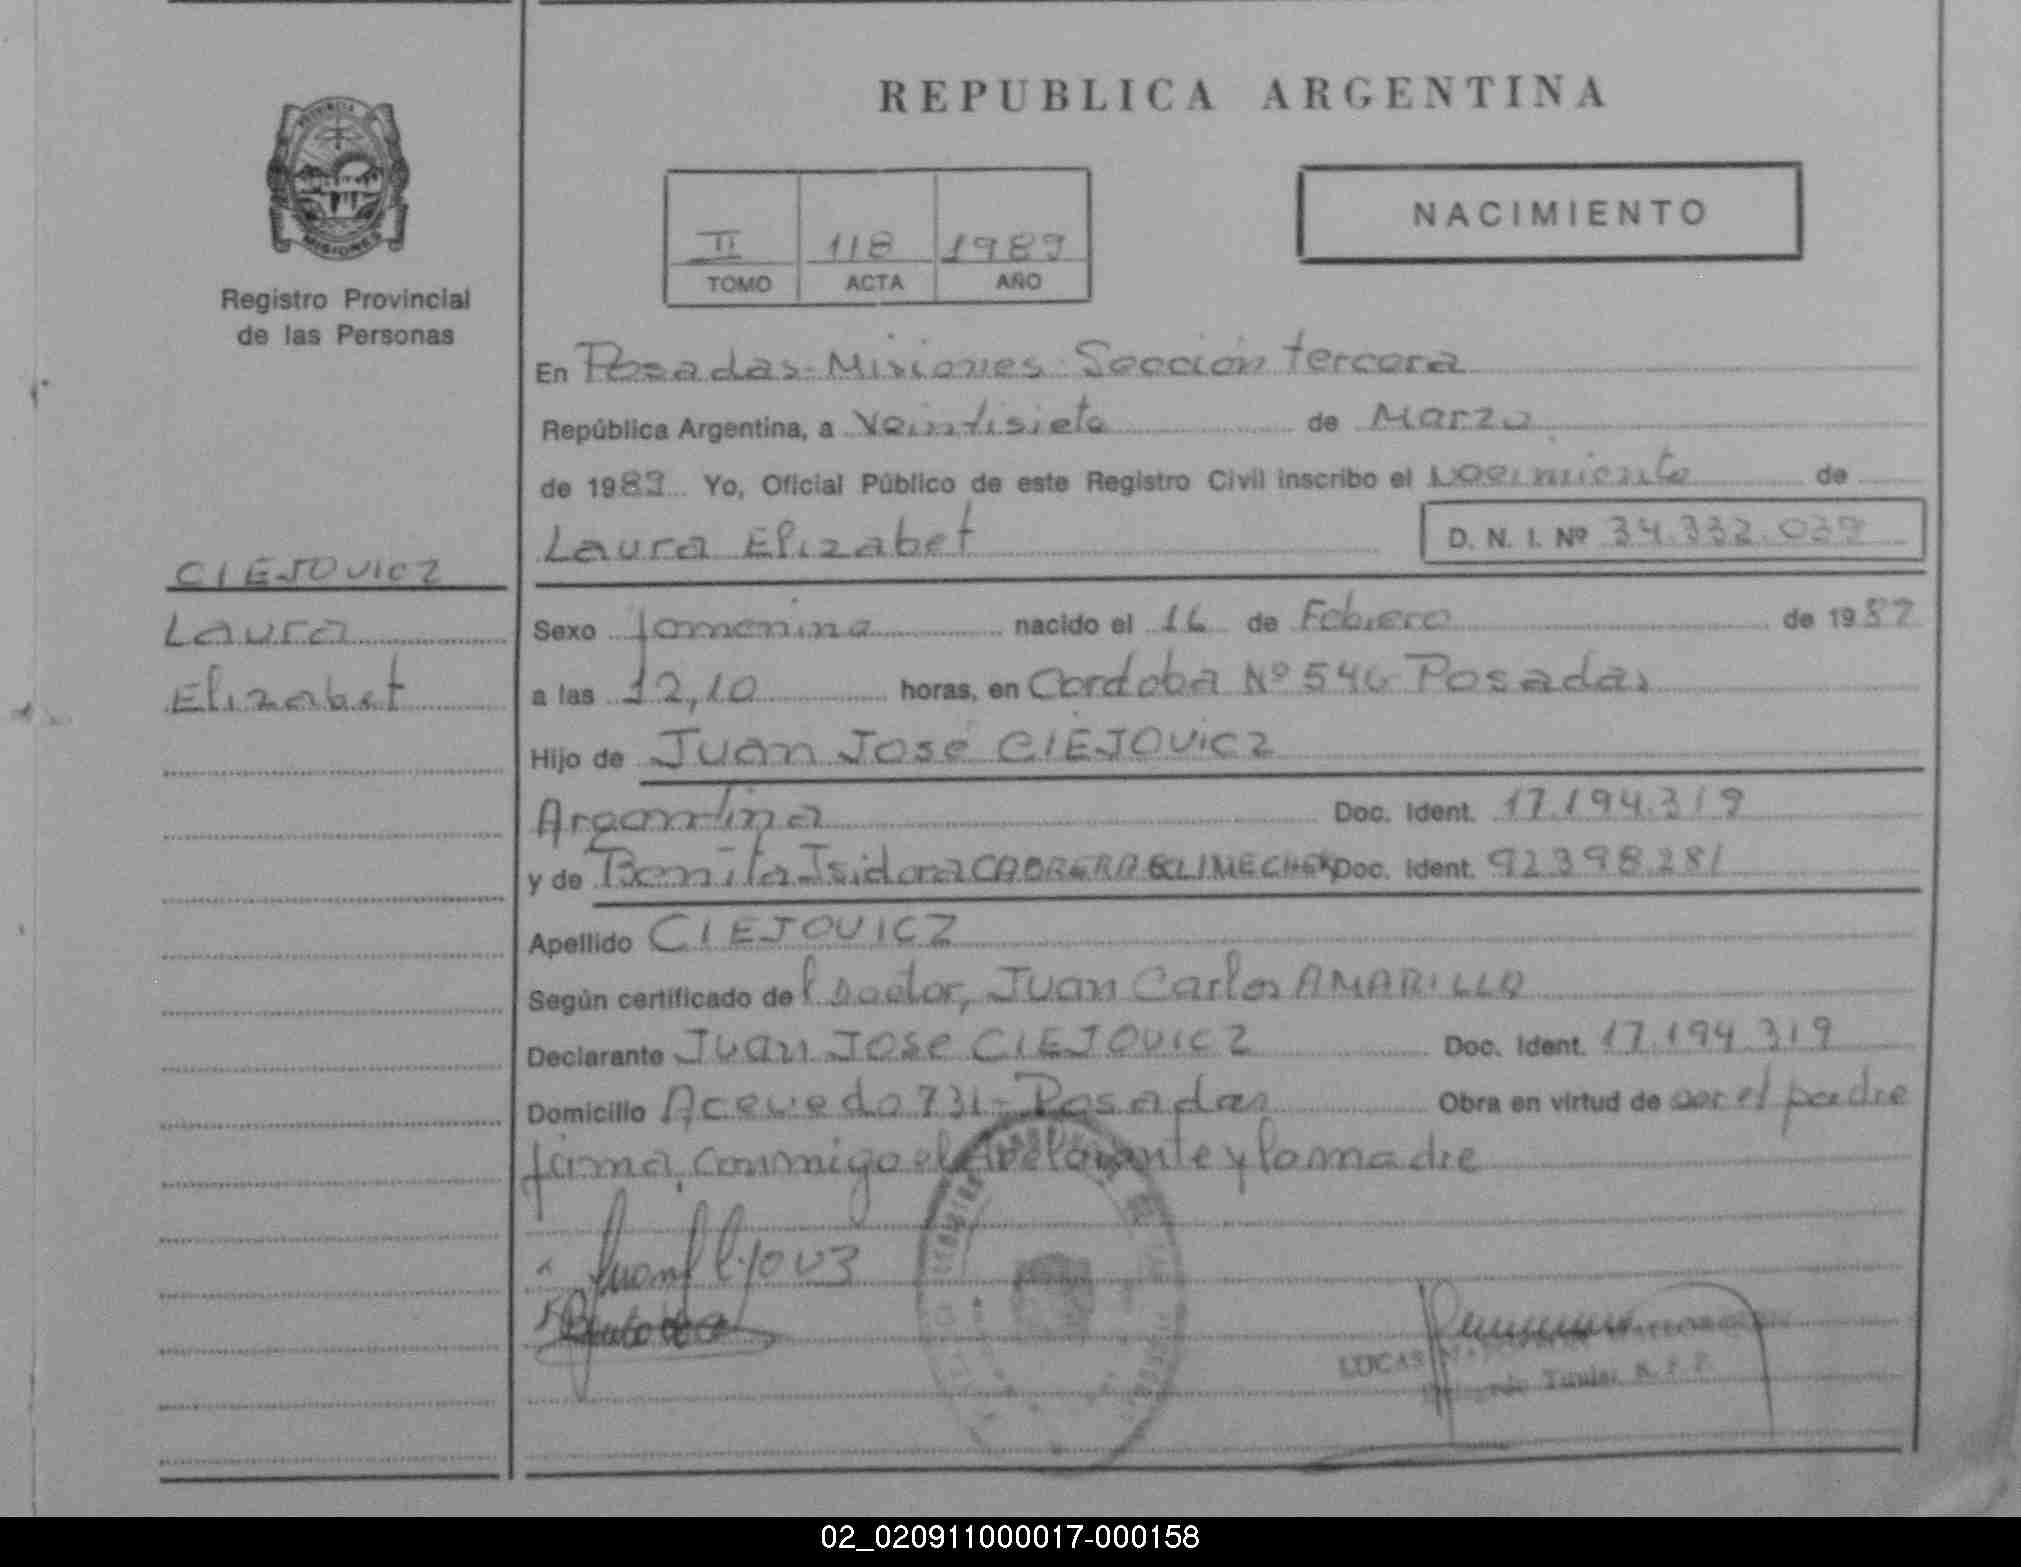 REPUBLICA ARGENTINA
NACIMIENTO
II 118 1989
TOMO ACTA AÑO
MISIONES
Registro Provincial
de las Personas
En Posadas-Misiones-Sección tercera
República Argentina, a Veintisiete de Marzo
de 1989 Yo, Oficial Público de este Registro Civil inscribo el nacimiento de
Laura Elizabet D. N. I. Nº 34.332.039
CIEJOVICZ
Laura
Elizabet
Sexo femenino nacido el 16 de Febrero de 19
a las 12,10 horas, en Cordoba Nº 546 Posadas
Hijo de Juan José CIEJOVICZ
Argentina Doc. Ident. 17.194.319
y de Benita Isidora CABRERA Doc. Ident. 92398.281
Apellido CIEJOVICZ
Según certificado del Doctor, Juan Carlos AMARILLO
Declarante Juan Jose CIEJOVICZ Doc. Ident. 17.194.319
Domicilio Acevedo 731-Posadas Obra en virtud de ser el padre
firma, conmigo el declarante y la madre
LUCAS
Titular R. P. P.
02_020911000017-000158